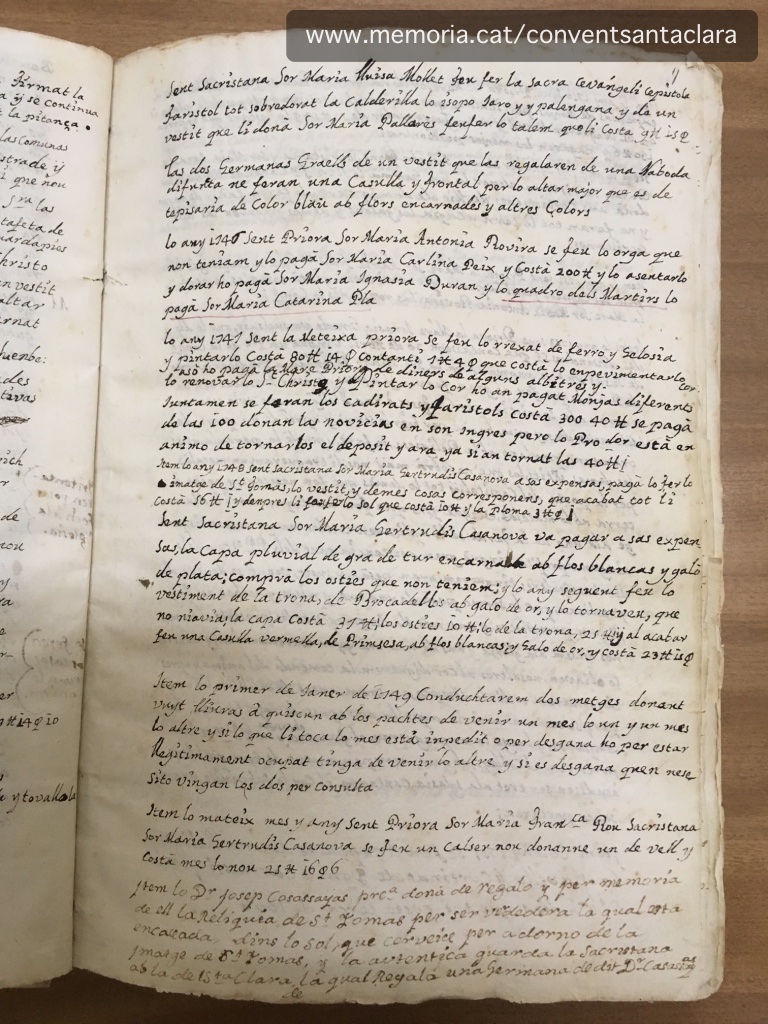 www.memoria.cat/conventsantaclara
Firmat la
a ÿ se continua
t la pitança.
las Comunas
strade ÿ
i que nou
s.ra las
tafeta de
uardapies
Christo
en vestit
altar
ornat
huenbe:
ades
tivas
sent Sacristana Sor Maria Lluisa Mollet feu fer la Sacra Cevangeli Cepistola
faristol tot sobredorat la Calderilla lo isopo Jaro y y palangana y de un
vestit que li donà Sor Maria Pallarès feu fer lo talem que li Costa 9 ℔ 15 ẞ
las dos Germanas Graells de un vestit que las regalaren de una Naboda
difunta ne feran una Casulla y frontal per lo altar major que es de
tepisaria de Color blau ab flors encarnades y altres Colors
lo any 1746 sent Priora Sor Maria Antonia Rovira se feu lo orga que
non teniam y lo pagà Sor Maria Carlina Peix y Costà 200 ℔ y lo asentarlo
y dorar ho pagà Sor Maria Ignasia Duran y lo quadro dels Martirs lo
pagà Sor Maria Catarina Pla
lo any 1747 sent la Meteixa priora se feu lo rrexat de ferro y Gelosia
y pintarlo Costà 80 ℔ 14 ẞ Contanti 1 ℔ 4 ẞ que costà lo enpevimentarlo
asò ho pagà la Mare Priora de diners de alguns albitres y
lo renovar lo St Christo y Pintar lo Cor ho an pagat Monjas diferents
Juntamen se feran los Cadirats y faristols Costà 300 40 ℔ se pagà
de las 100 donan las novicias en son ingres pero lo Pro dor està en
animo de tornarlos el deposit y ara ya si an tornat las 40 ℔
Item lo any 1748 sent Sacristana Sor Maria Gertrudis Casanova a sas expensas, pagà lo fer lo
imatge de St Tomàs, lo vestit, y demes cosas corresponens, que acabat tot li
costà 56 ℔ y denpres li feu fer lo sol que costà 10 ℔ y la Ploma 3 ℔ ẞ
Sent Sacristana Sor Maria Gertrudis Casanova va pagar a sas expen
sas, la Capa pluvial de gra de tur encarnade ab flos blancas y galò
de plata; comprà los osties que non teniem; y lo any seguent feu lo
vestiment de la trona, de Brocadellos ab galo de or, y lo tornaveu, que
no niavia; la capa Costà 37 ℔; los osties 10 ℔; lo de la trona, 25 ℔; y al acabar
feu una Casulla vermella, de Primsesa, ab flos blancas; y Galo de or, y costà 23 ℔ 15 ẞ
Item lo primer de Janer de 1749 Conduchtarem dos metges donant
vuyt lliuras à quiscun ab los pachtes de venir un mes lo un y un mes
lo altre y si lo que li toca lo mes està inpedit o per desgana ho per estar
llegitimament ocupat tinga de venir lo altre y si es desgana quen nese
sito vingan los dos per consulta
Item lo mateix mes y any sent Priora Sor Maria Fran.ca Rou Sacristana
Sor Maria Gertrudis Casanova se feu un Calser nou donanne un de vell y
costà mes lo nou 25 ℔ 16 ẞ 6
Item lo Dr Josep Casassayas prè. donà de regalo y per memoria
de ell la Reliquia de St Tomas per ser vededera la qual esta
encaçada, dins lo sol, que cerveix per adorno de la
Imatge de St Tomas, y la autentica guarda la Sacristana
ab la de Sta Clara, la qual Regalà una Germana de dit Dr Casasayas